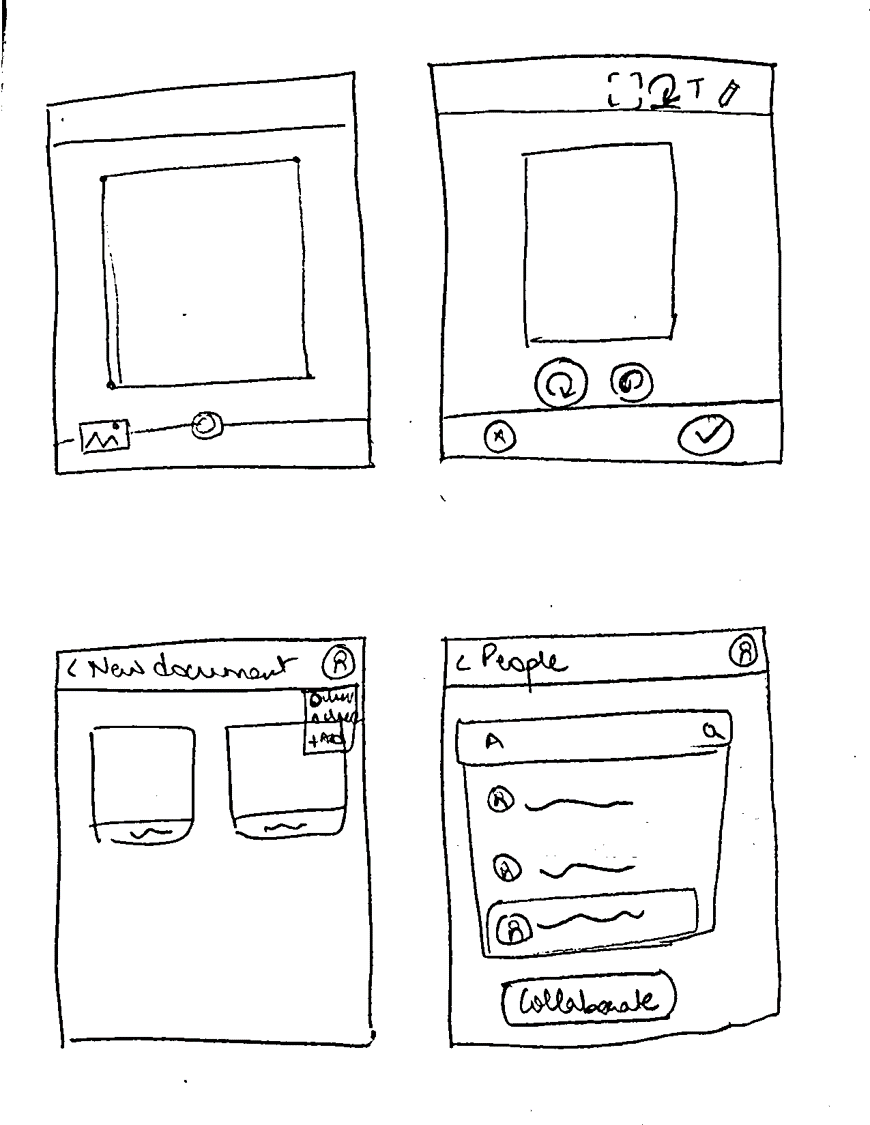 T
< New document
+ Add
< People
A
Collaborate